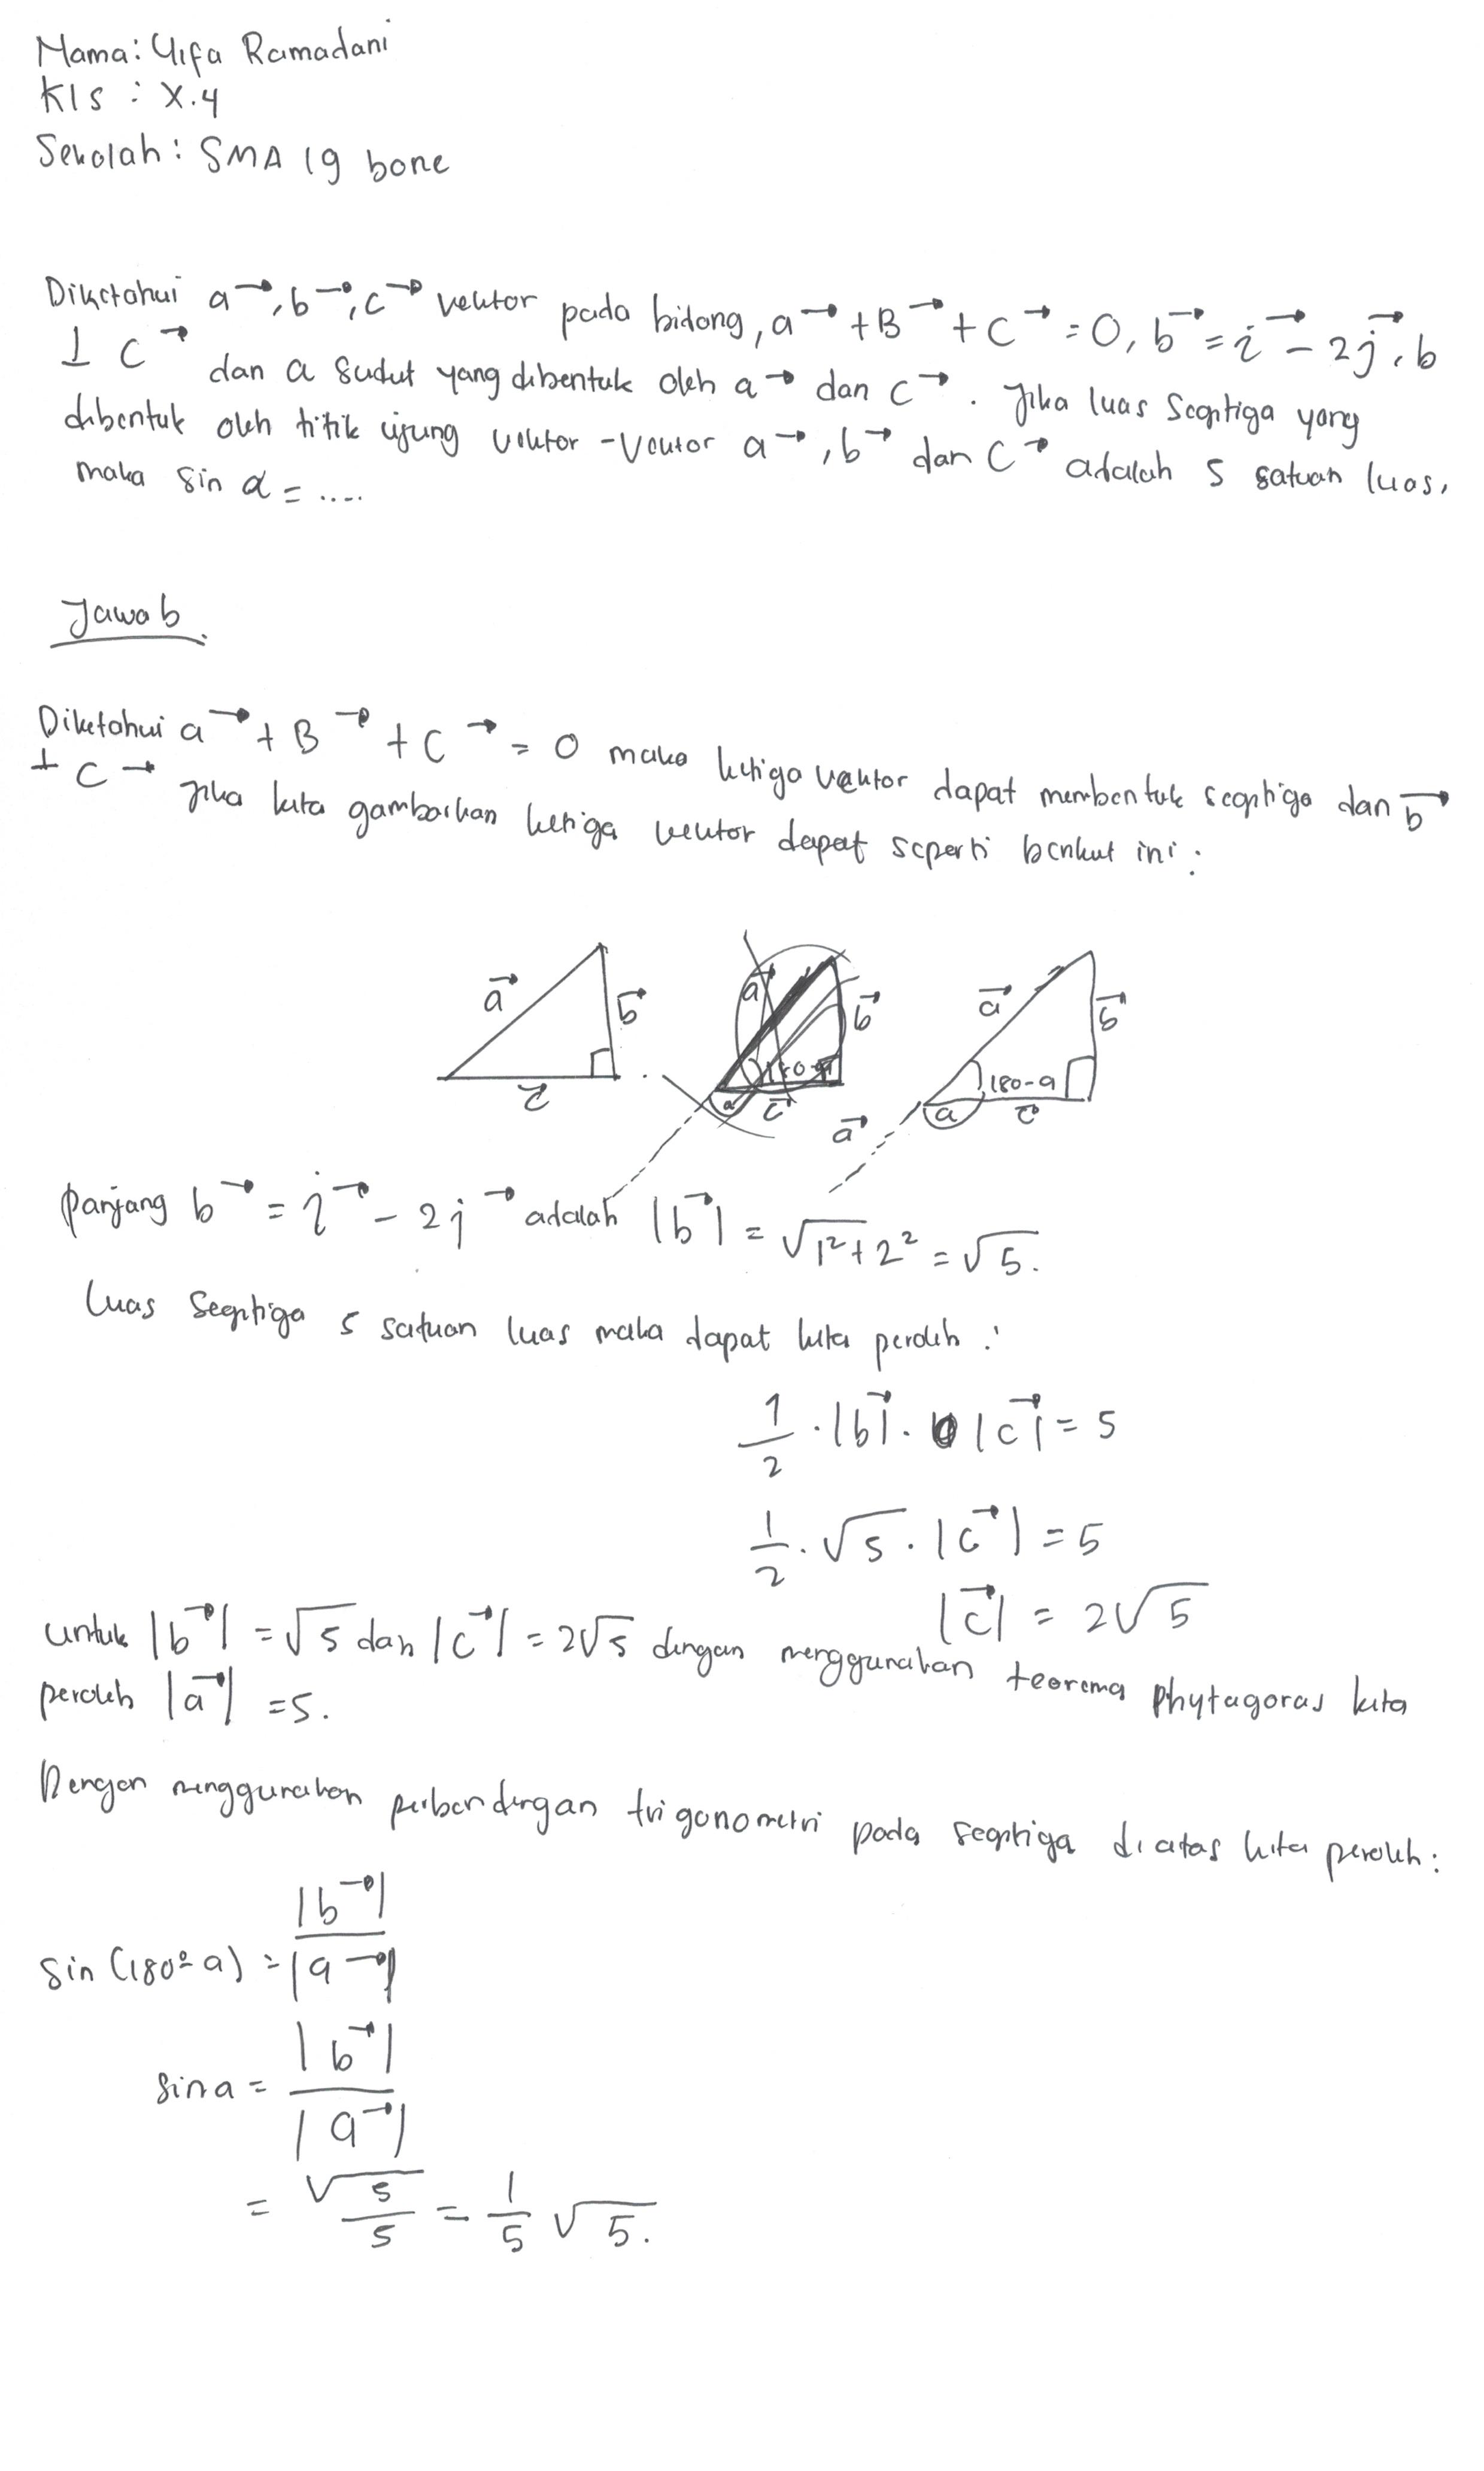 Nama: Ulfa Ramadani
Kls : X.4
Sekolah: SMA 19 bone
Diketahui a→, b→, c→ vektor pada bidang, a→ + B→ + C→ = 0, b→ = i→ - 2j→, b
⊥ C→ dan a sudut yang dibentuk oleh a→ dan c→. Jika luas segitiga yang
dibentuk oleh titik ujung vektor-vektor a→, b→ dan C→ adalah 5 satuan luas,
maka sin α = ....
Jawab.
Diketahui a→ + B→ + C→ = 0 maka ketiga vektor dapat membentuk segitiga dan b→
⊥ C→ jika kita gambarkan ketiga vektor dapat seperti berikut ini :
a→ b→ c→
a→ b→ 180-a a c→
a→ b→ 180-a a c→ a→
panjang b→ = i→ - 2j→ adalah |b→| = √1²+2² = √5.
Luas segitiga 5 satuan luas maka dapat kita peroleh :
1/2 . |b→| . |c→| = 5
1/2 . √5 . |c→| = 5
|c→| = 2√5
untuk |b→| = √5 dan |c→| = 2√5 dengan menggunakan teorema phytagoras kita
peroleh |a→| = 5.
Dengan menggunakan perbandingan trigonometri pada segitiga diatas kita peroleh :
sin (180°-a) = |b→|/|a→|
sin a = |b→|/|a→|
= √5/5 = 1/5 √5.